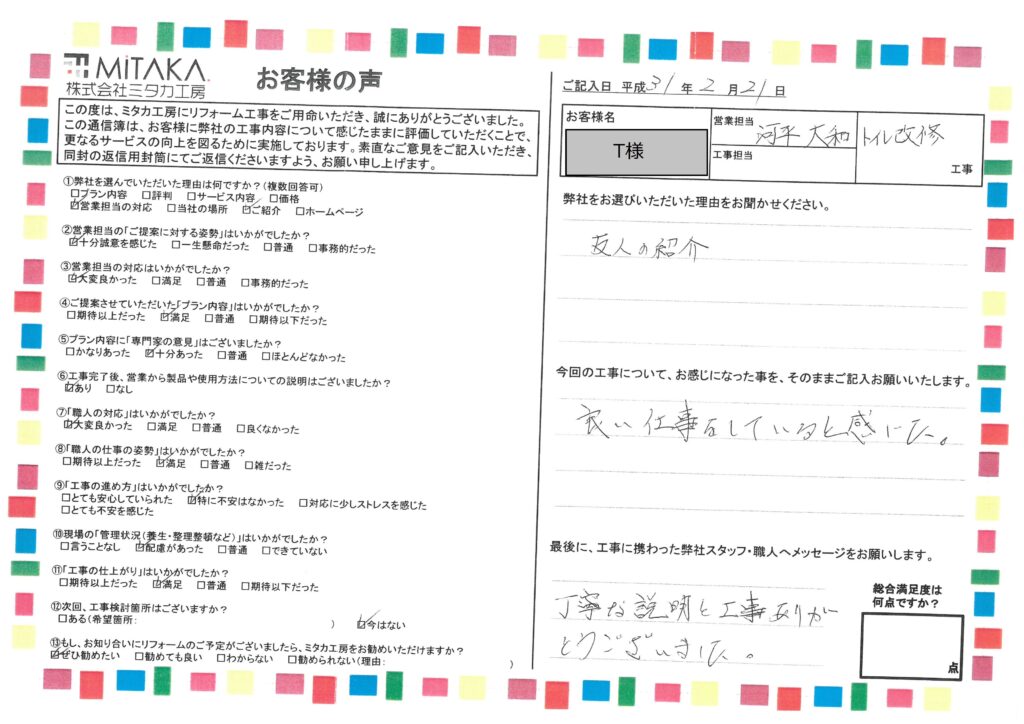 MiTAKA
株式会社ミタカ工房
お客様の声
この度は、ミタカ工房にリフォーム工事をご用命いただき、誠にありがとうございました。
この通信簿は、お客様に弊社の工事内容について感じたままに評価していただくことで、
更なるサービスの向上を図るために実施しております。素直なご意見をご記入いただき、
同封の返信用封筒にてご返信くださいますよう、お願い申し上げます。
①弊社を選んでいただいた理由は何ですか?(複数回答可)
□プラン内容 □評判 □サービス内容 □価格
☑営業担当の対応 □当社の場所 ☑ご紹介 □ホームページ
②営業担当の「ご提案に対する姿勢」はいかがでしたか?
☑十分誠意を感じた □一生懸命だった □普通 □事務的だった
③営業担当の対応はいかがでしたか?
☑大変良かった □満足 □普通 □事務的だった
④ご提案させていただいた「プラン内容」はいかがでしたか?
□期待以上だった ☑満足 □普通 □期待以下だった
⑤プラン内容に「専門家の意見」はございましたか?
□かなりあった ☑十分あった □普通 □ほとんどなかった
⑥工事完了後、営業から製品や使用方法についての説明はございましたか?
☑あり □なし
⑦「職人の対応」はいかがでしたか?
☑大変良かった □満足 □普通 □良くなかった
⑧「職人の仕事の姿勢」はいかがでしたか?
□期待以上だった ☑満足 □普通 □雑だった
⑨「工事の進め方」はいかがでしたか?
□とても安心していられた ☑特に不安はなかった □対応に少しストレスを感じた
□とても不安を感じた
⑩現場の「管理状況(養生・整理整頓など)」はいかがでしたか?
□言うことなし ☑配慮があった □普通 □できていない
⑪「工事の仕上がり」はいかがでしたか?
□期待以上だった ☑満足 □普通 □期待以下だった
⑫次回、工事検討箇所はございますか?
□ある(希望箇所: ) ☑今はない
⑬もし、お知り合いにリフォームのご予定がございましたら、ミタカ工房をお勧めいただけますか?
☑ぜひ勧めたい □勧めても良い □わからない □勧められない(理由: )
ご記入日 平成31年2月21日
お客様名
T様
営業担当 河平 大和
工事担当
トイレ改修
工事
弊社をお選びいただいた理由をお聞かせください。
友人の紹介
今回の工事について、お感じになった事を、そのままご記入お願いいたします。
良い仕事をしていると感じた。
最後に、工事に携わった弊社スタッフ・職人へメッセージをお願いします。
丁寧な説明と工事ありが
とうございました。
総合満足度は
何点ですか?
点